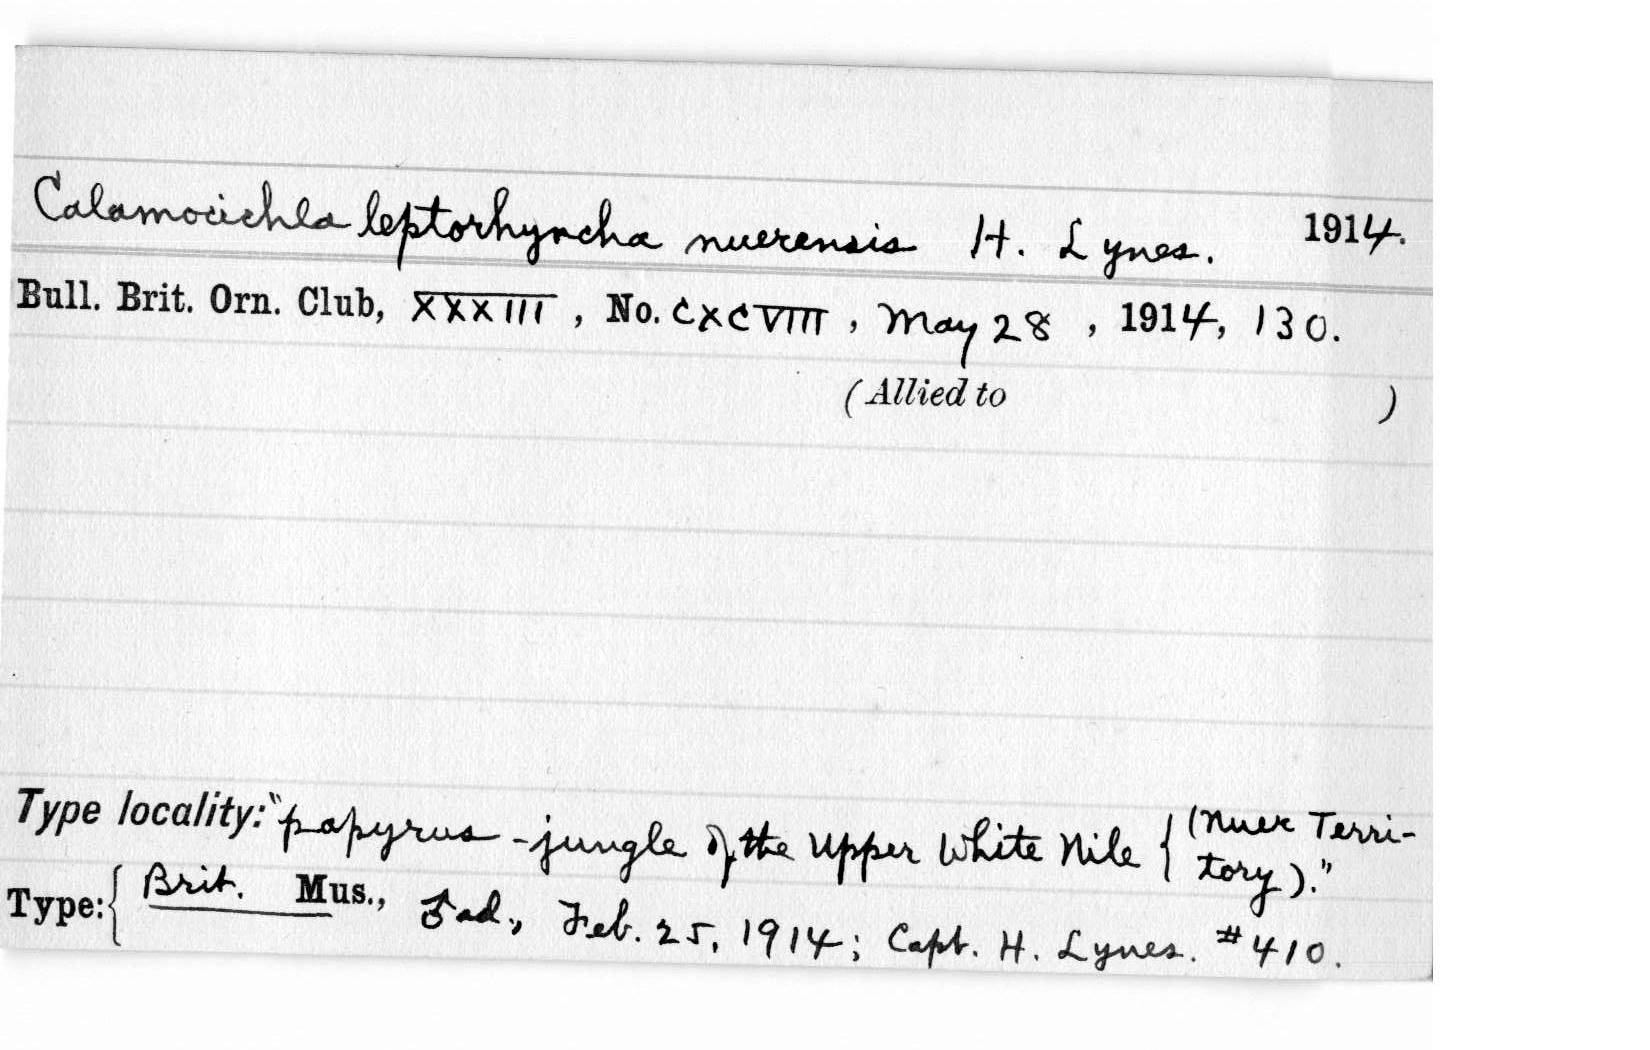 Calamocichla leptorhyncha nuerensis H. Lynes. 1914.
Bull. Brit. Orn. Club, XXXIII, No. CXCVIII, May 28, 1914, 130.
(Allied to )
Type locality: "papyrus-jungle of the Upper White Nile { (Nuer Terri-
tory)."
Type: { Brit. Mus., ♂ ad., Feb. 25, 1914; Capt. H. Lynes. #410.